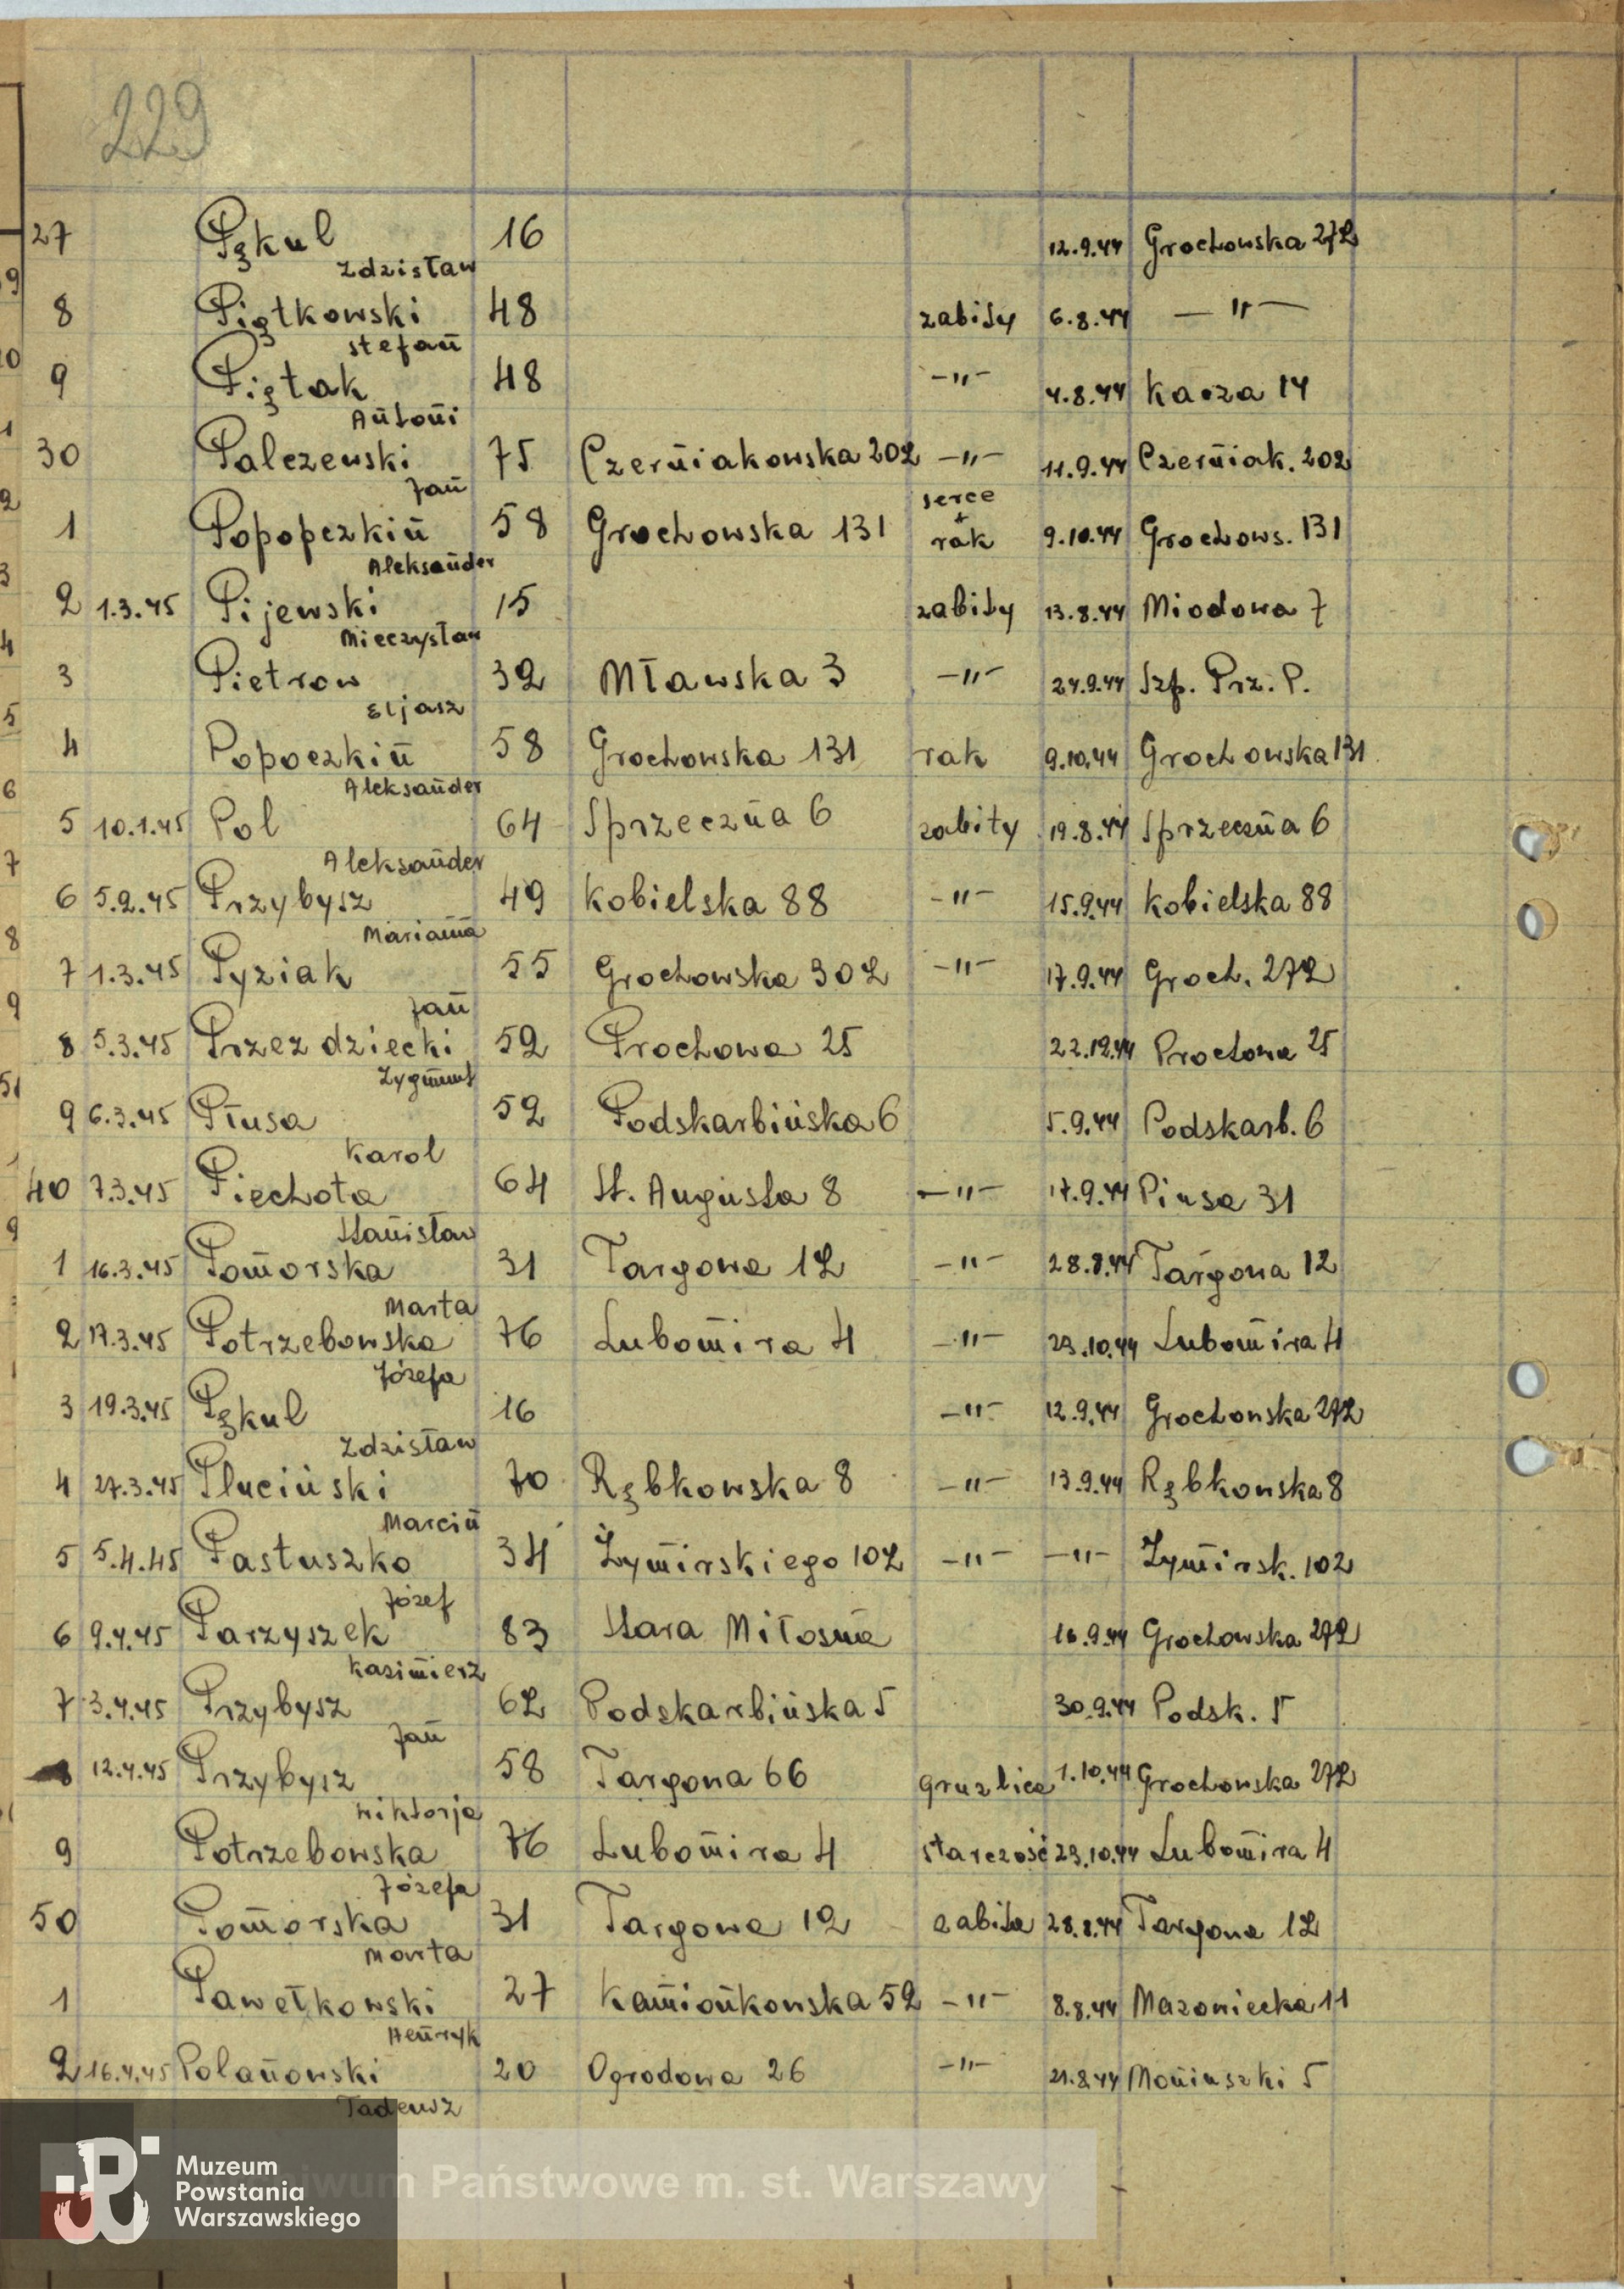 229
27 Pękul 16 12.9.44 Grochowska 272
Zdzisław
8 Piątkowski 48 zabity 6.8.44 — " —
Stefan
9 Piątak 48 —"— 4.8.44 Kacza 14
Antoni
30 Palczewski 75 Czerniakowska 202 —"— 11.9.44 Czerniak. 202
Jan
serce
+
1 Popopczkin 58 Grochowska 131 rak 9.10.44 Grochows. 131
Aleksander
2 1.3.45 Pijewski 15 zabity 13.8.44 Miodowa 7
Mieczysław
3 Pietrow 32 Mławska 3 —"— 24.9.44 Szp. Prz. P.
Eljasz
4 Popoczkin 58 Grochowska 131 rak 9.10.44 Grochowska 131
Aleksander
5 10.1.45 Pol 64 Sprzeczna 6 zabity 19.8.44 Sprzeczna 6
Aleksander
6 5.2.45 Przybysz 49 Kobielska 88 —"— 15.9.44 Kobielska 88
Marianna
7 1.3.45 Pyziak 55 Grochowska 302 —"— 17.9.44 Groch. 272
Jan
8 5.3.45 Przezdziecki 52 Prochowa 25 22.12.44 Prochowa 25
Zygmunt
9 6.3.45 Płusa 52 Podskarbińska 6 5.9.44 Podskarb. 6
Karol
40 7.3.45 Piechota 64 St. Augusta 8 —"— 17.9.44 Piusa 31
Stanisław
1 16.3.45 Pomorska 31 Targowa 12 —"— 28.8.44 Targowa 12
Marta
2 17.3.45 Potrzebowska 76 Lubomira 4 —"— 23.10.44 Lubomira 4
Józefa
3 19.3.45 Pękul 16 —"— 12.9.44 Grochowska 272
Zdzisław
4 27.3.45 Pluciński 70 Rębkowska 8 —"— 13.9.44 Rębkowska 8
Marcin
5 5.4.45 Pastuszko 34 Żymirskiego 102 —"— —"— Żymirsk. 102
Józef
6 9.4.45 Parzyszek 83 Stara Miłosna 16.9.44 Grochowska 272
Kazimierz
7 3.4.45 Przybysz 62 Podskarbińska 5 30.9.44 Podsk. 5
Jan
8 12.4.45 Przybysz 58 Targowa 66 gruzlica 1.10.44 Grochowska 272
Wiktorja
9 Potrzebowska 76 Lubomira 4 starczość 23.10.44 Lubomira 4
Józefa
50 Pomorska 31 Targowa 12 zabita 28.8.44 Targowa 12
Marta
1 Pawełkowski 27 Kamionkowska 52 —"— 8.8.44 Mazowiecka 11
Henryk
2 16.4.45 Polanowski 20 Ogrodowa 26 —"— 21.8.44 Moniuszki 5
Tadeusz
Muzeum
Powstania
Warszawskiego
iwum Państwowe m. st. Warszawy